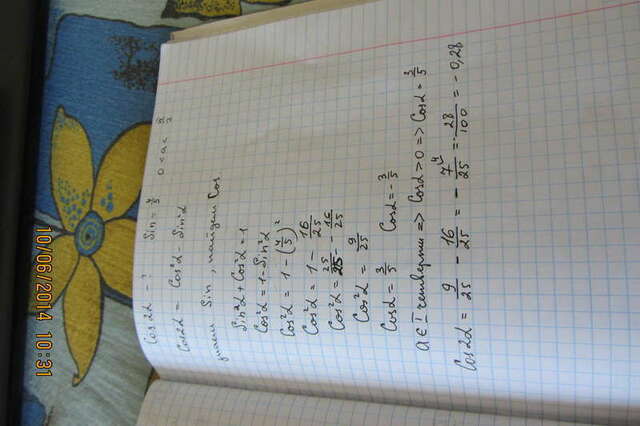 Cos2α - ? Sin = 4/5 0 < α < π/2
Cos2α = Cos²α - Sin²α
знаем Sin, найдём Cos
Sin²α + Cos²α = 1
Cos²α = 1 - Sin²α
Cos²α = 1 - (4/5)²
Cos²α = 1 - 16/25
Cos²α = 25/25 - 16/25
Cos²α = 9/25
Cosα = 3/5 Cosα = - 3/5
α ∈ I четверти => Cosα > 0 => Cosα = 3/5
Cos2α = 9/25 - 16/25 = - 7/25 = - 28/100 = - 0,28
10/06/2014 10:31